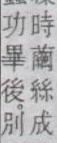 時繭絲成
功畢後。別